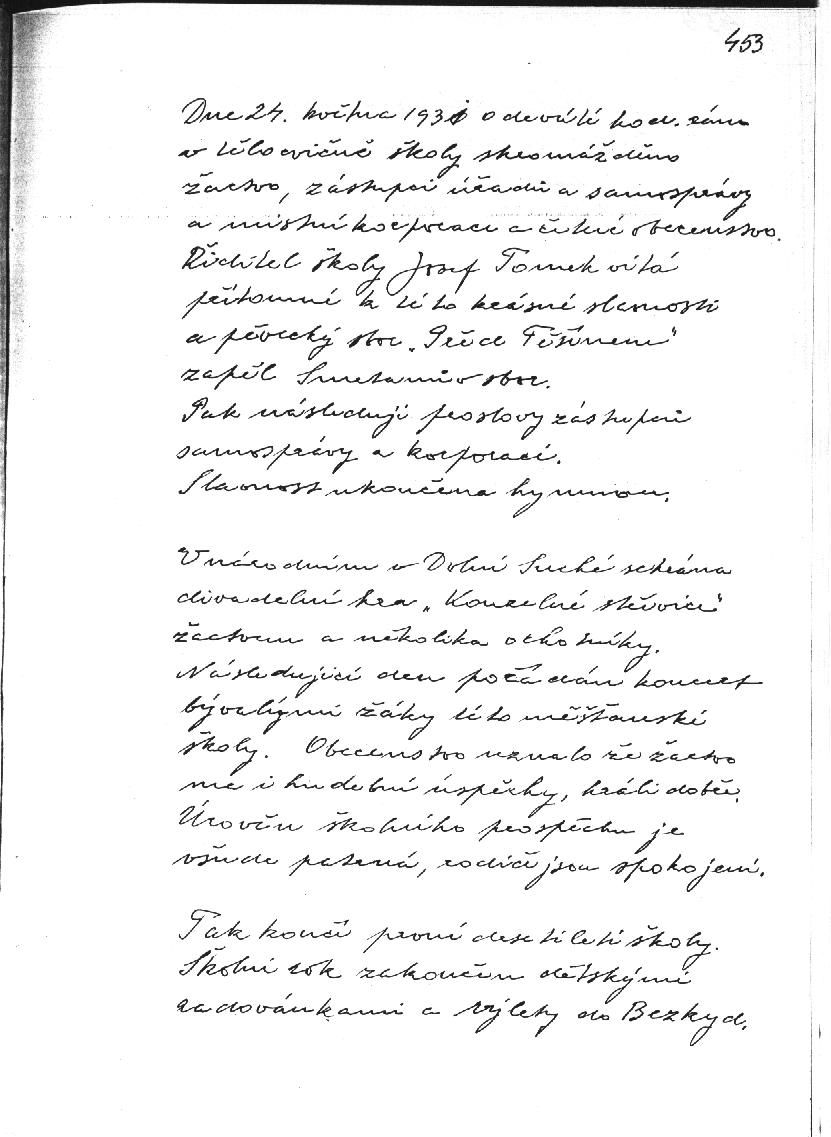 453
Dne 24. května 1931 o deváté hod. ráno
v tělocvičně školy shromážděno
žactvo, zástupci úřadů a samosprávy
a místní korporace a četné obecenstvo.
Ředitel školy Josef Tomek vítá
přítomné k této krásné slavnosti
a pěvecký sbor „Před Těšínem"
zapěl Smetanův sbor.
Pak následují proslovy zástupců
samosprávy a korporací.
Slavnost ukončena hymnou.
V národním v Dolní Suché sehrána
divadelní hra „Kouzelné střevíce"
žactvem a několika ochotníky.
Následující den pořádán koncert
bývalými žáky této měšťanské
školy. Obecenstvo uznalo že žactvo
má i hudební úspěchy, hráli dobře.
Úroveň školního prospěchu je
všude patrná, rodiče jsou spokojeni.
Tak končí první desetiletí školy.
Školní rok zakončen dětskými
radovánkami a výlety do Bezkyd.